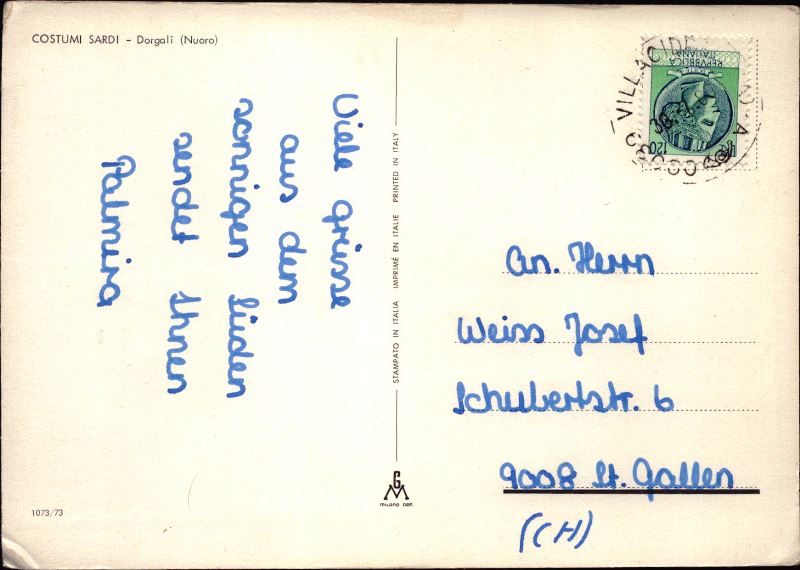 COSTUMI SARDI - Dorgali (Nuoro)
Viele grüsse
aus dem
sonnigen Süden
sendet Ihnen
Palmira
STAMPATO IN ITALIA IMPRIMÉ EN ITALIE PRINTED IN ITALY
REPVBBLICA
ITALIANA
120
VILLACID
An. Herrn
Weiss Josef
Schubertstr. 6
9008 St. Gallen
(CH)
1073/73
G
M
MILANO DEP.